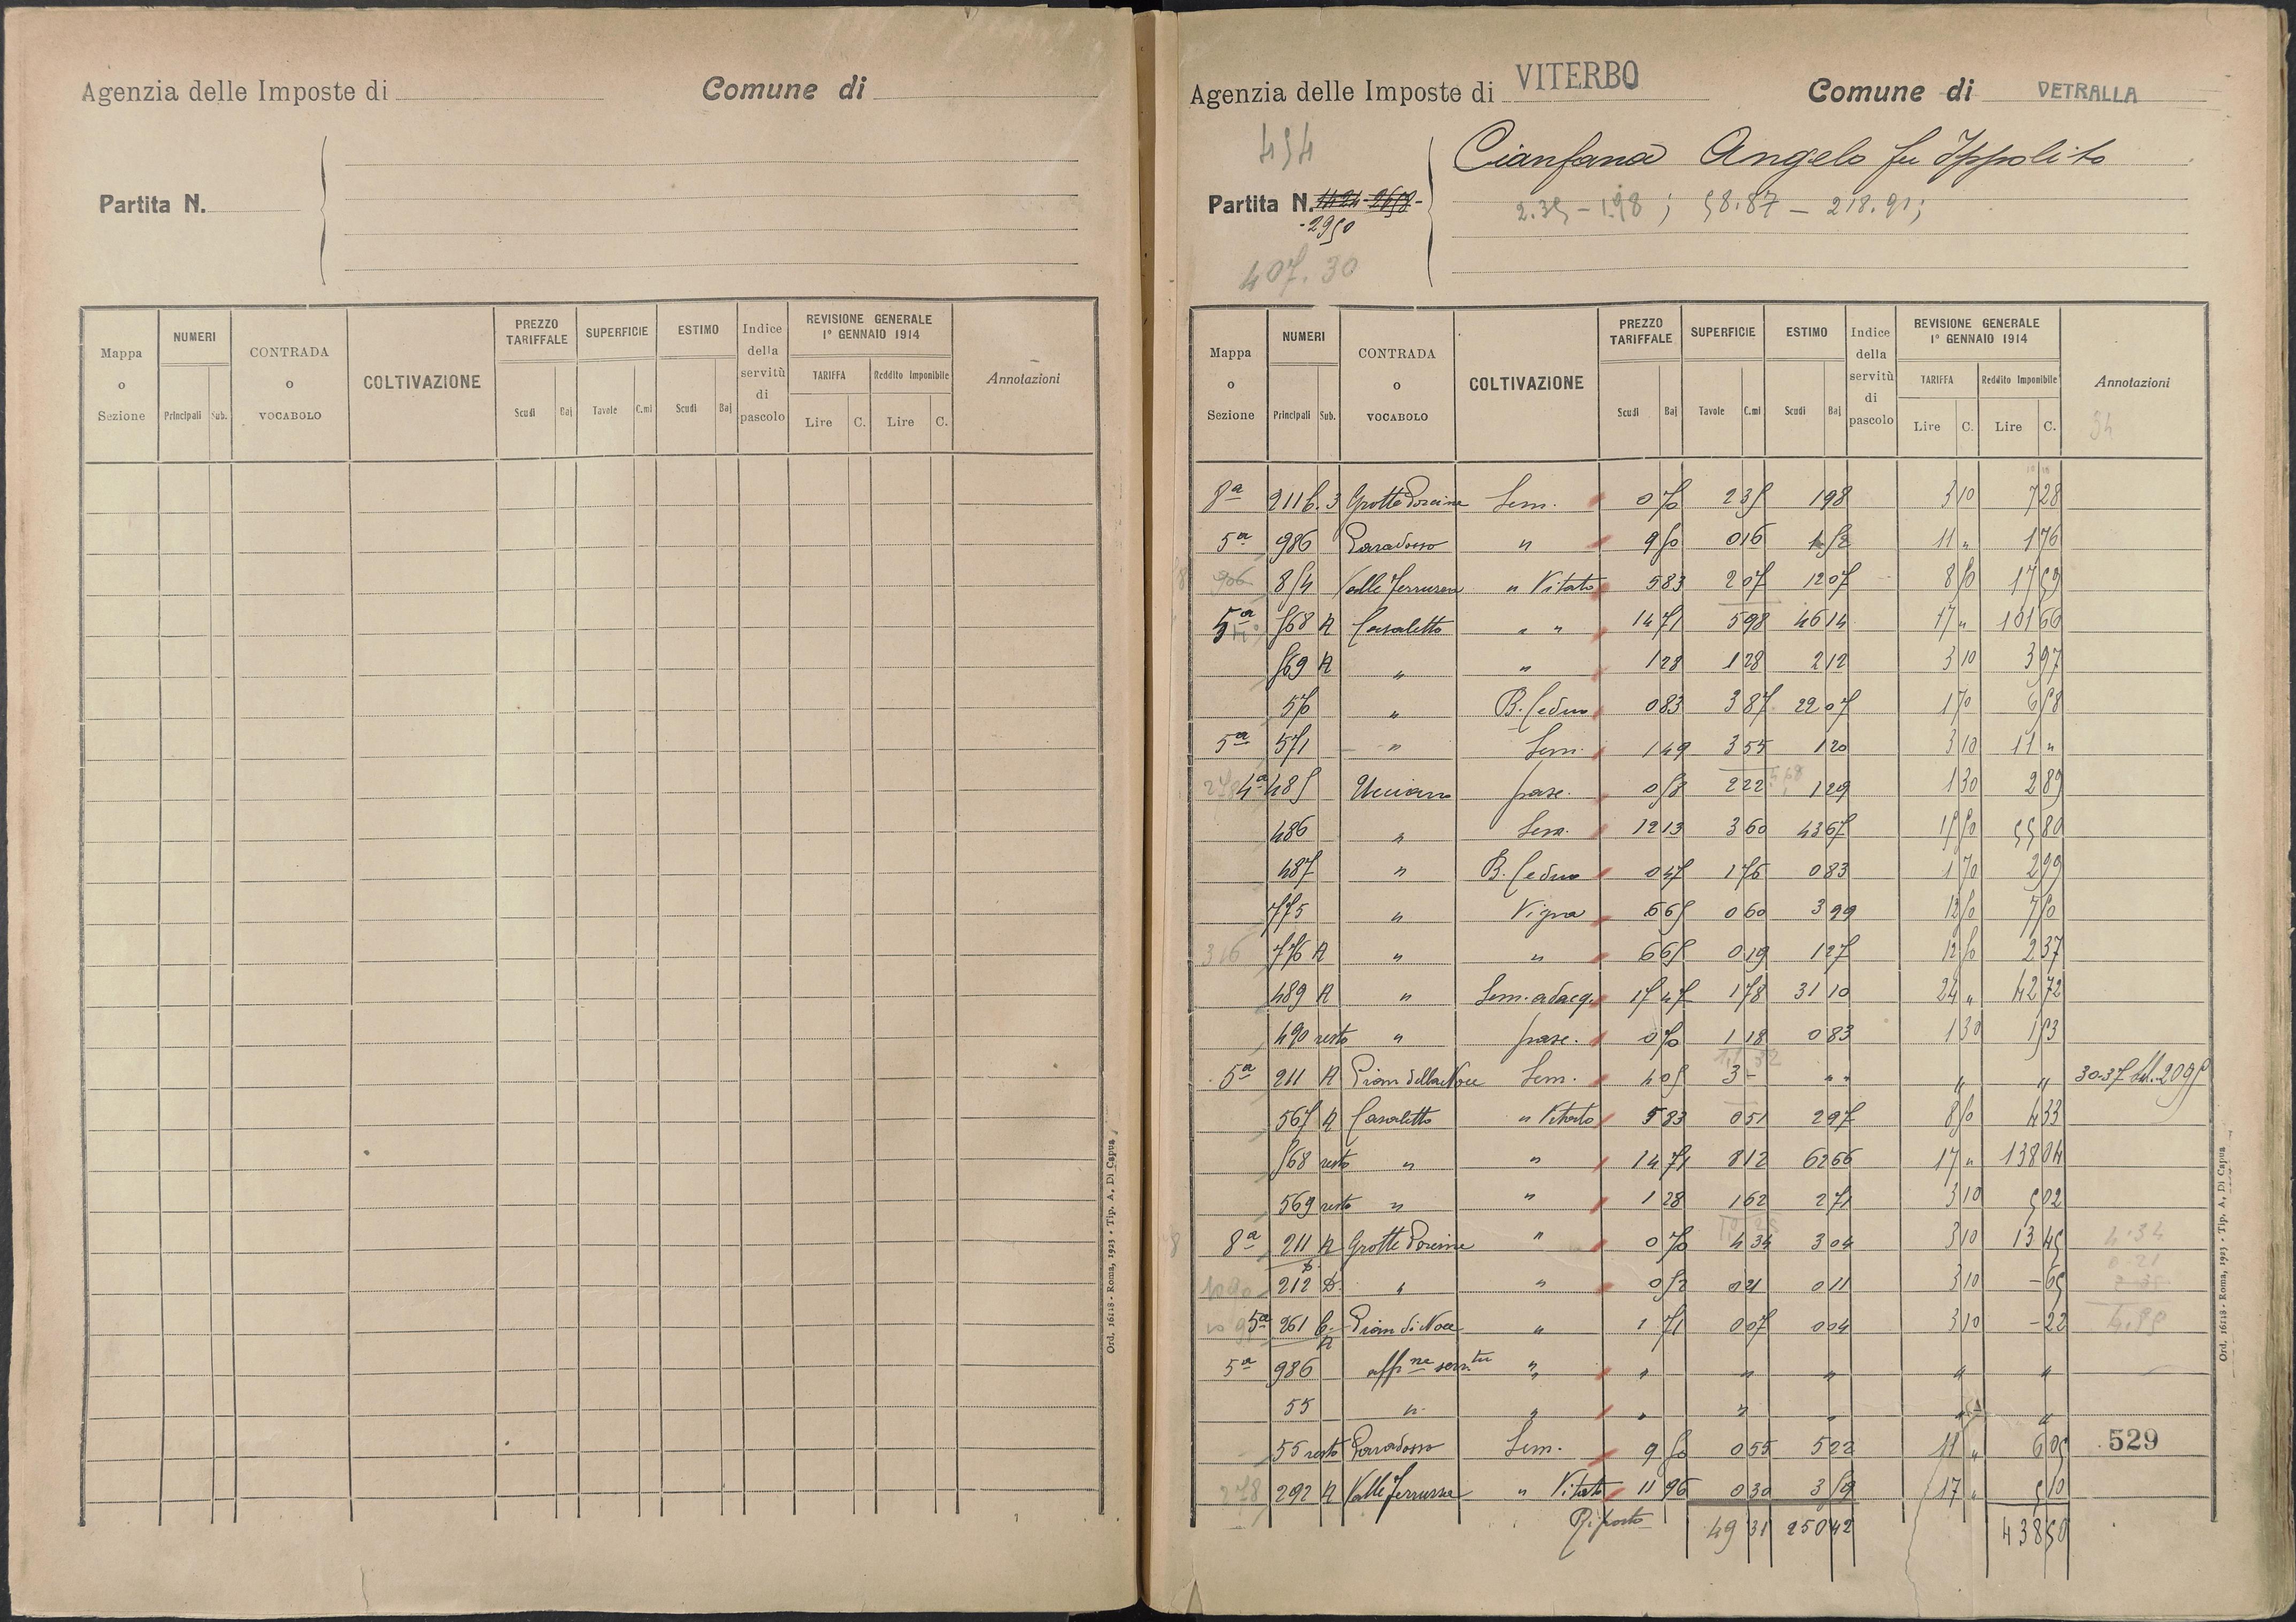 Agenzia delle Imposte di
Comune di
Partita N.
Mappa o Sezione
NUMERI
Principali Sub.
CONTRADA o VOCABOLO
COLTIVAZIONE
PREZZO TARIFFALE
Scudi Baj
SUPERFICIE
Tavole C.mi
ESTIMO
Scudi Baj
Indice della servitù di pascolo
REVISIONE GENERALE 1° GENNAIO 1914
TARIFFA
Lire C.
Reddito Imponibile
Lire C.
Annotazioni
Ord. 16118 - Roma, 1923 - Tip. A. Di Capua
Agenzia delle Imposte di VITERBO
Comune di VETRALLA
494
Cianfana Angelo fu Ippolito
Partita N. 1124 - 2658 -
2.35 - 1.98 ; 58.87 - 218.91 ;
- 2950
407.30
Mappa o Sezione
NUMERI
Principali Sub.
CONTRADA o VOCABOLO
COLTIVAZIONE
PREZZO TARIFFALE
Scudi Baj
SUPERFICIE
Tavole C.mi
ESTIMO
Scudi Baj
Indice della servitù di pascolo
REVISIONE GENERALE 1° GENNAIO 1914
TARIFFA
Lire C.
Reddito Imponibile
Lire C.
Annotazioni
54
8a 211 b.3 Grotte Porcine Sem. 0 70 2 35 1 98 3 10 7 28
5a 986 Paradosso " 9 50 0 16 1 52 11 " 1 76
906 854 " Vitato 5 83 2 07 12 07 8 50 17 59
5a 568 A Casaletto " " 14 71 5 98 46 14 17 " 101 66
569 A " " 1 28 1 28 2 12 3 10 3 97
570 " B. Ceduo 0 83 3 87 22 07 1 70 6 58
5a 571 " Sem. 1 49 3 55 1 20 3 10 11 "
278 4a 485 pasc. 0 58 2 22 1 29 1 30 2 89
486 " Sem. 12 13 3 60 43 67 15 50 55 80
487 " B. Ceduo 0 47 1 76 0 83 1 70 2 99
775 " Vigna 6 65 0 60 3 99 12 50 7 50
316 776 A " " 6 65 0 19 1 27 12 50 2 37
489 A " Sem. adacq. 17 47 1 78 31 10 24 " 42 72
490 resto " pasc. 0 70 1 18 0 83 1 30 1 53
5a 211 A Pian della Noce Sem. 4 05 3 - " " " " 30-37 2095
567 A Casaletto " Vitato 5 83 0 51 2 97 8 50 4 33
568 resto " " 14 71 8 12 62 66 17 " 138 04
569 resto " " 1 28 1 62 2 71 3 10 5 02
8a 211 A Grotte Porcine " 0 70 4 34 3 04 3 10 13 45 4.34
212 D " " 0 52 0 21 0 11 3 10 - 65 0.21
5a 261 b A Pian di Noce " 1 71 0 07 0 04 3 10 - 22
5a 986 aff.ne serv.tu " " " " " "
55 " " " " " " "
55 resto Paradosso Sem. 9 50 0 55 5 22 11 " 6 05
529
278 292 A " Vitato 11 96 0 30 3 59 17 " 5 10
Riporto 49 31 250 42 438 50
Ord. 16118 - Roma, 1923 - Tip. A. Di Capua